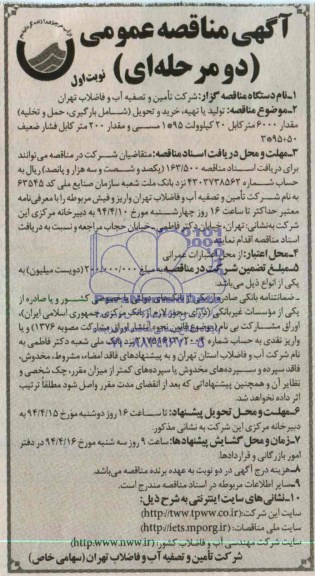 آگهی مناقصه عمومی
(دو مرحله‌ای) نوبت اول
۱-نام دستگاه مناقصه گزار: شرکت تأمین و تصفیه آب و فاضلاب تهران
۲-موضوع مناقصه: تولید یا تهیه، خرید و تحویل (شامل بارگیری، حمل و تخلیه)
مقدار ۶۰۰۰ متر کابل ۲۰ کیلوولت ۹۵*۱ مسی و مقدار ۲۰۰ متر کابل فشار ضعیف
۳*۹۵+۵۰
۳-مهلت و محل دریافت اسناد مناقصه: متقاضیان شرکت در مناقصه می‌توانند
برای دریافت اسناد مناقصه ۱۶۳/۵۰۰ (یکصد و شصت و سه هزار و پانصد) ریال به
حساب شماره ۴۳۰۲۷۳۸۵۶۲ نزد بانک ملت شعبه سازمان صنایع ملی کد ۶۳۵۴۵
به نام شرکت تأمین و تصفیه آب و فاضلاب تهران واریز و فیش مربوطه را با معرفی‌نامه
معتبر حداکثر تا ساعت ۱۶ روز چهارشنبه مورخ ۹۴/۴/۱۰ به دبیرخانه مرکزی این
شرکت به‌نشانی: تهران، خیابان دکتر فاطمی، خیابان حجاب مراجعه و نسبت به دریافت
اسناد مناقصه اقدام نمایند.
۴-محل اعتبار: از محل اعتبارات عمرانی
۵-مبلغ تضمین شرکت در مناقصه به مبلغ ۲۰۰/۰۰۰/۰۰۰ (دویست میلیون) به
یکی از انواع ذیل می‌باشد:
-ضمانتنامه بانکی صادره از یکی از بانک‌های دولتی یا خصوصی کشور و یا صادره از
یکی از مؤسسات غیربانکی (دارای مجوز لازم از بانک مرکزی جمهوری اسلامی ایران)،
اوراق مشارکت بی نام موضوع قانون نحوه انتشار اوراق مشارکت مصوبه ۱۳۷۶ و یا
واریز نقدی به حساب شماره بانک ملی شعبه دکتر فاطمی به
نام شرکت آب و فاضلاب استان تهران و به پیشنهادهای فاقد امضاء، مشروط، مخدوش،
فاقد سپرده و سپرده‌های مخدوش یا سپرده‌های کمتر از میزان مقرر، چک شخصی و
نظایر آن و همچنین پیشنهاداتی که بعد از انقضای مدت مقرر واصل شود مطلقاً ترتیب
اثر داده نخواهد شد.
۶-مهلت و محل تحویل پیشنهاد: تا ساعت ۱۶ روز دوشنبه مورخ ۹۴/۴/۱۵ به
دبیرخانه مرکزی این شرکت به نشانی مذکور.
۷-زمان و محل گشایش پیشنهادها: ساعت ۹ روز سه شنبه مورخ ۹۴/۴/۱۶ در دفتر
امور بازرگانی و قراردادها.
۸-هزینه درج آگهی در دو نوبت به عهده برنده مناقصه می‌باشد.
۹-سایر اطلاعات مربوطه در اسناد مناقصه مندرج است.
۱۰-نشانی‌های سایت اینترنتی به شرح ذیل:
سایت این شرکت: (http://tww.tpww.co.ir)
سایت ملی مناقصات: (http://iets.mporg.ir)
سایت شرکت مهندسی آب و فاضلاب کشور: (http:www.nww.ir)
شرکت تأمین و تصفیه آب و فاضلاب تهران (سهامی خاص)